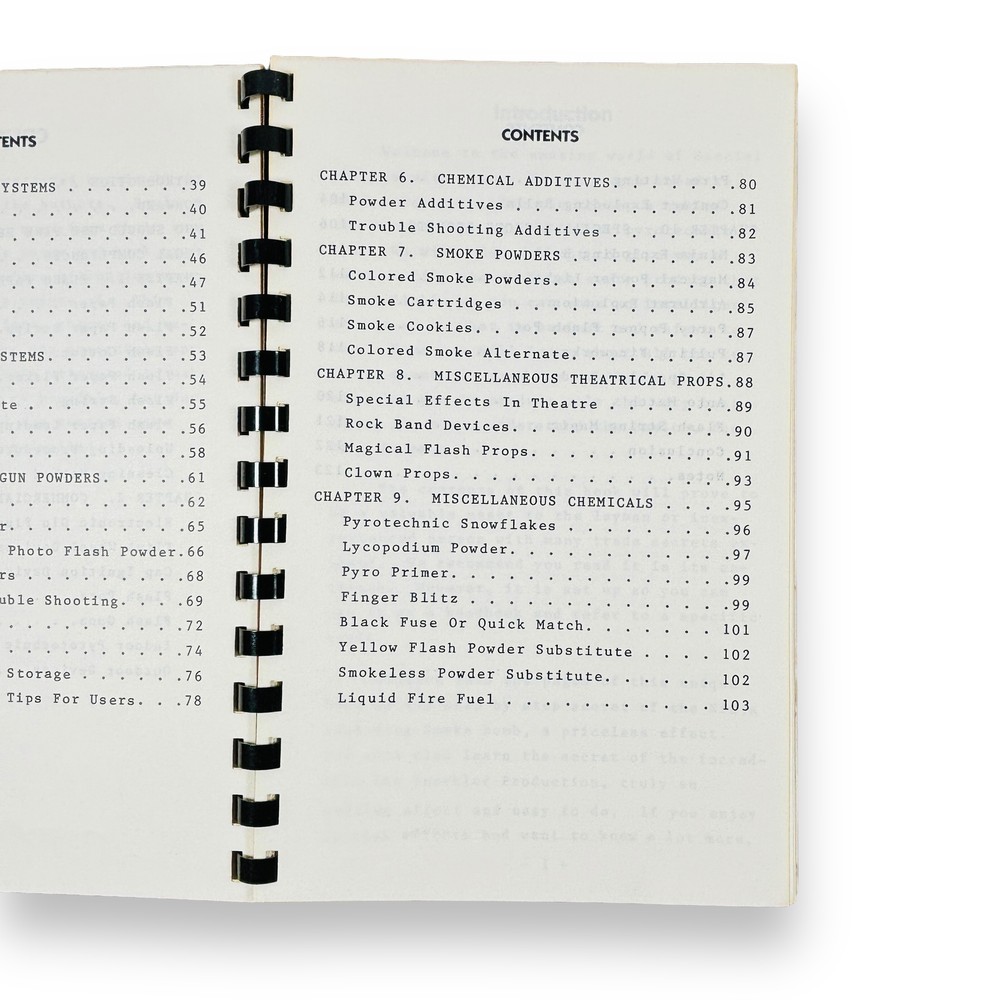 TENTS
YSTEMS . . . . . . .39
. . . . . . . . . .40
. . . . . . . . . .41
. . . . . . . . . .46
. . . . . . . . . .47
. . . . . . . . . .51
. . . . . . . . . .52
STEMS. . . . . . . .53
. . . . . . . . . .54
te . . . . . . . . .55
. . . . . . . . . .56
. . . . . . . . . .58
GUN POWDERS. . . . .61
. . . . . . . . . .62
r. . . . . . . . . .65
Photo Flash Powder.66
rs . . . . . . . . .68
uble Shooting. . . .69
. . . . . . . . . .72
. . . . . . . . . .74
Storage . . . . . .76
Tips For Users. . .78
CONTENTS
CHAPTER 6. CHEMICAL ADDITIVES. . . . . . .80
Powder Additives . . . . . . . . . . .81
Trouble Shooting Additives . . . . . .82
CHAPTER 7. SMOKE POWDERS . . . . . . . . .83
Colored Smoke Powders. . . . . . . . .84
Smoke Cartridges . . . . . . . . . . .85
Smoke Cookies. . . . . . . . . . . . .87
Colored Smoke Alternate. . . . . . . .87
CHAPTER 8. MISCELLANEOUS THEATRICAL PROPS.88
Special Effects In Theatre . . . . . .89
Rock Band Devices. . . . . . . . . . .90
Magical Flash Props. . . . . . . . . .91
Clown Props. . . . . . . . . . . . . .93
CHAPTER 9. MISCELLANEOUS CHEMICALS . . . .95
Pyrotechnic Snowflakes . . . . . . . .96
Lycopodium Powder. . . . . . . . . . .97
Pyro Primer. . . . . . . . . . . . . .99
Finger Blitz . . . . . . . . . . . . .99
Black Fuse Or Quick Match. . . . . . . 101
Yellow Flash Powder Substitute . . . . 102
Smokeless Powder Substitute. . . . . . 102
Liquid Fire Fuel . . . . . . . . . . . 103